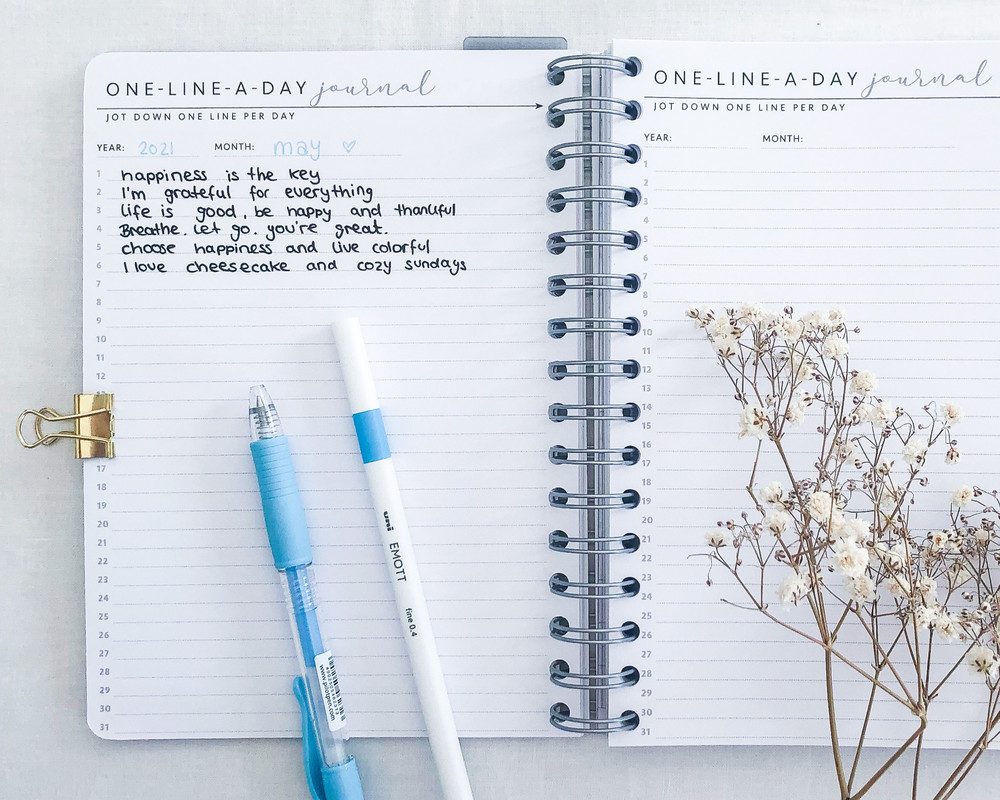 ONE-LINE-A-DAY journal
JOT DOWN ONE LINE PER DAY
YEAR: 2021 MONTH: may ♡
1 happiness is the key
2 I'm grateful for everything
3 life is good, be happy and thankful
4 Breathe. Let go. you're great.
5 choose happiness and live colorful
6 I love cheesecake and cozy sundays
7
8
9
10
11
12
17
18
19
20
21
22
23
24
25
26
27
28
29
30
31
uni EMOTT fine 0.4
www.pilotpen.com
ONE-LINE-A-DAY journal
JOT DOWN ONE LINE PER DAY
YEAR: MONTH:
1
2
3
4
5
6
7
8
9
10
11
12
13
14
15
16
17
18
19
20
21
22
23
24
25
26
27
28
29
30
31